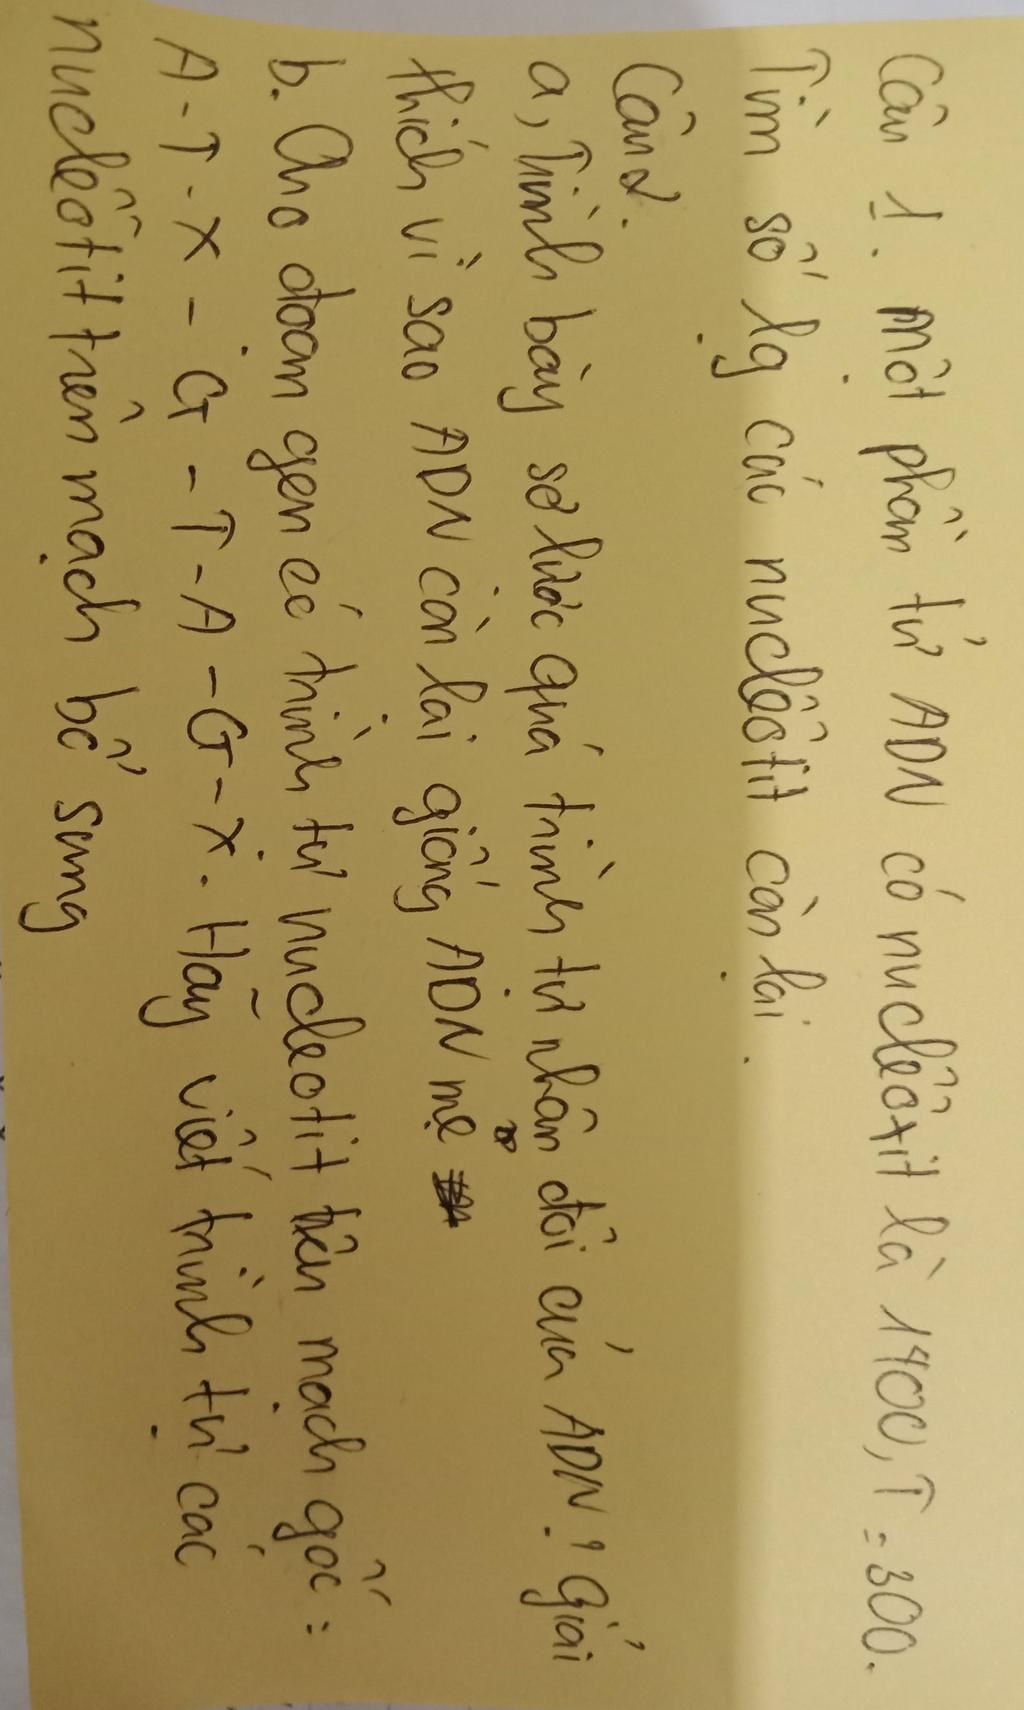 Câu 1. Một phân tử ADN có nuclêôtit là 1400, T = 300.
Tìm số lg các nuclêôtit còn lại.
Câu 2.
a, Trình bày sơ lược quá trình tự nhân đôi của ADN? Giải
thích vì sao ADN còn lại giống ADN mẹ
b. Cho đoạn gen có trình tự nucleotit trên mạch gốc:
A - T - X - G - T - A - G - X. Hãy viết trình tự các
nuclêôtit trên mạch bổ sung